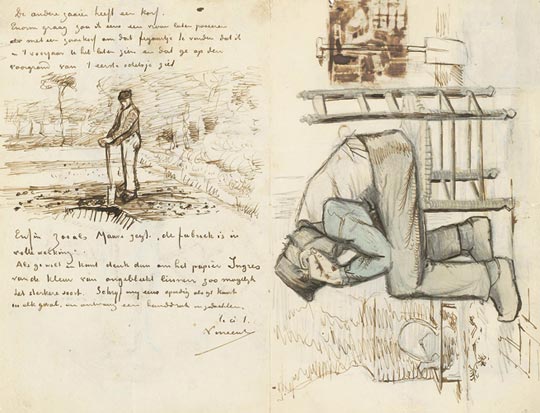 De andere zaaier heeft een korf.
Enorm graag zou ik eens een vrouw laten poseeren
met een zaaikorf om dat figuurtje te vinden dat ik
U 't voorjaar heb laten zien en dat ge op den
voorgrond van 't eerste schetsje ziet
Enfin zooals Mauve zegt, de fabriek is in
volle werking.
Als ge wil en kunt denk dan om het papier Ingres
van de kleur van ongebleekt linnen zoo mogelijk
het sterkere soort. Schrijf mij eens spoedig als ge kunt
in elk geval, en ontvang een handdruk in gedachten.
t. à t.
Vincent